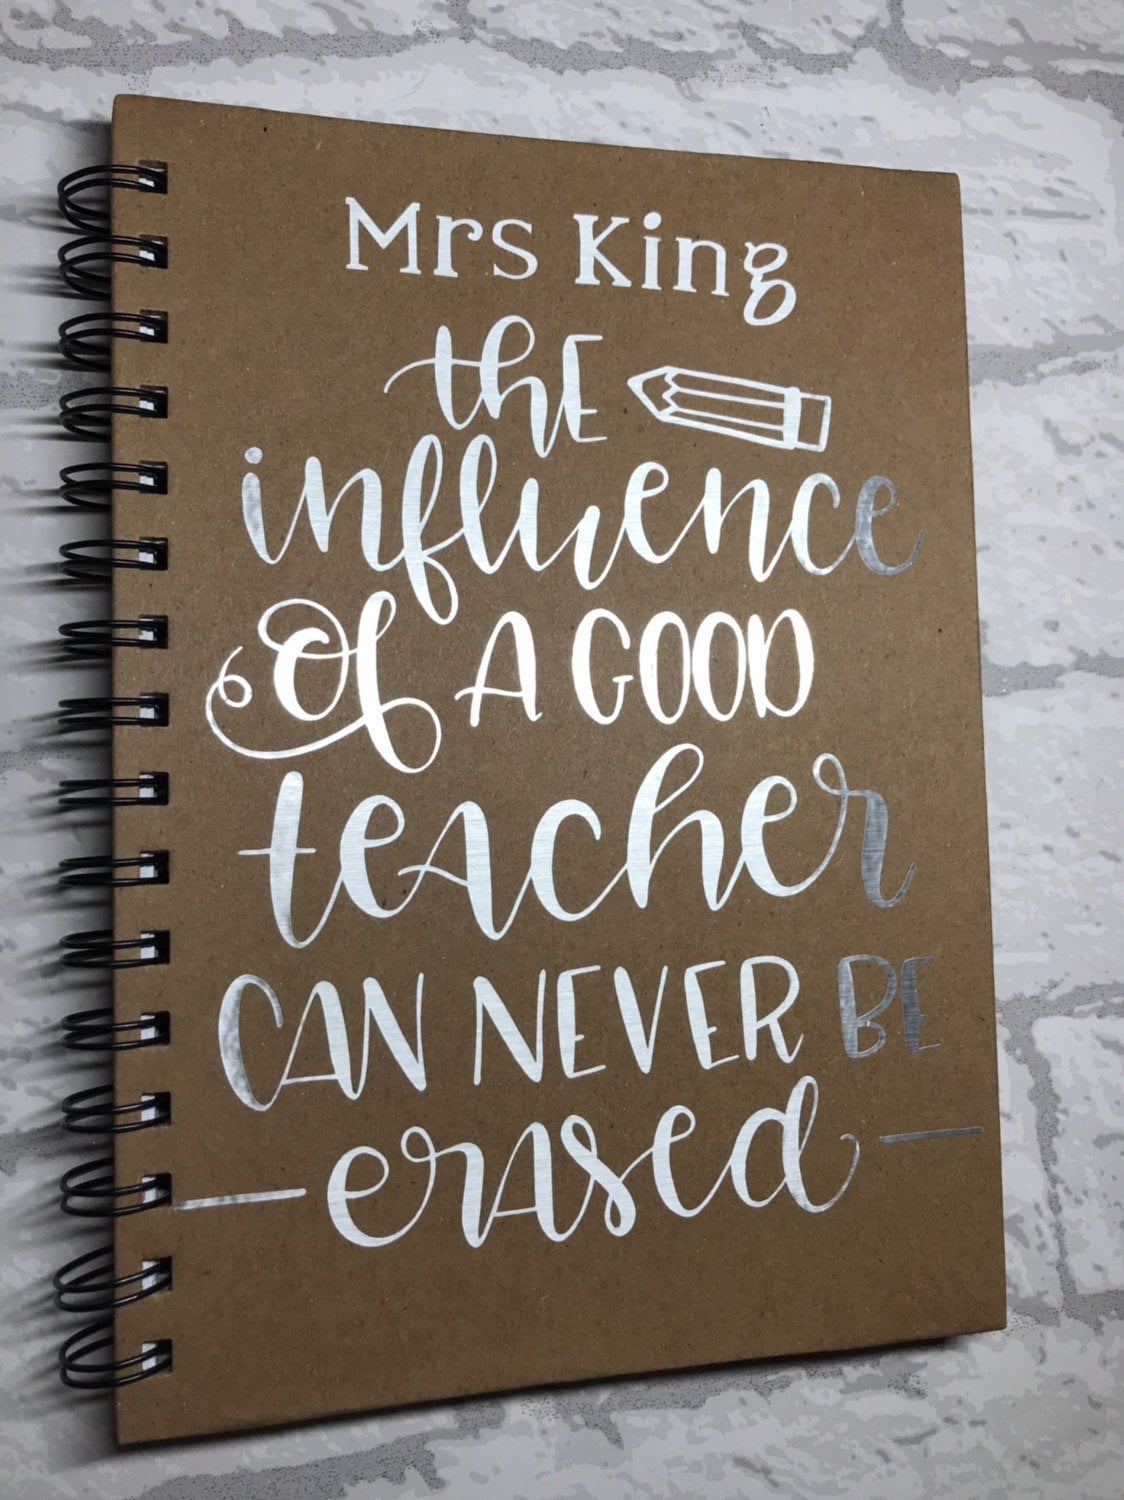 Mrs King
thE
influence
Of A GOOD
teAcher
CAN NEVER BE
erAsed